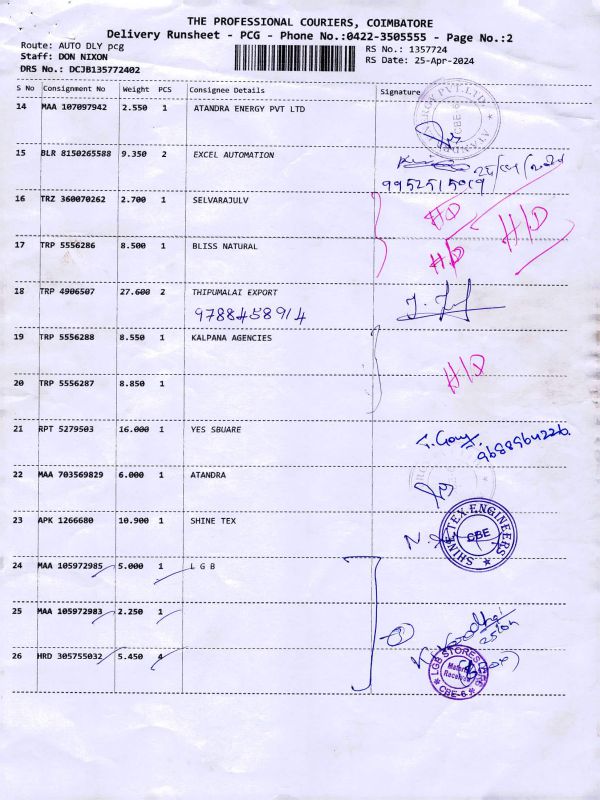 THE PROFESSIONAL COURIERS, COIMBATORE
Delivery Runsheet - PCG - Phone No.:0422-3505555 - Page No.:2
Route: AUTO DLY pcg
RS No.: 1357724
Staff: DON NIXON
RS Date: 25-Apr-2024
DRS No.: DCJB135772402
S No Consignment No Weight PCS Consignee Details Signature
14 MAA 107097942 2.550 1 ATANDRA ENERGY PVT LTD
15 BLR 8150265588 9.350 2 EXCEL AUTOMATION
9952515019
16 TRZ 360070262 2.700 1 SELVARAJULV
H/D
H/D
17 TRP 5556286 8.500 1 BLISS NATURAL
H/D
18 TRP 4906507 27.600 2 THIPUMALAI EXPORT
9788458914
19 TRP 5556288 8.550 1 KALPANA AGENCIES
H/D
20 TRP 5556287 8.850 1
21 RPT 5279503 16.000 1 YES SBUARE
9688964226
22 MAA 703569829 6.000 1 ATANDRA
23 APK 1266680 10.900 1 SHINE TEX
SHINE TEX ENGINEERS
CBE
24 MAA 105972985 5.000 1 L G B
25 MAA 105972983 2.250 1
26 HRD 305755032 5.450 4
LGB STORES
Material
Received
CBE-6